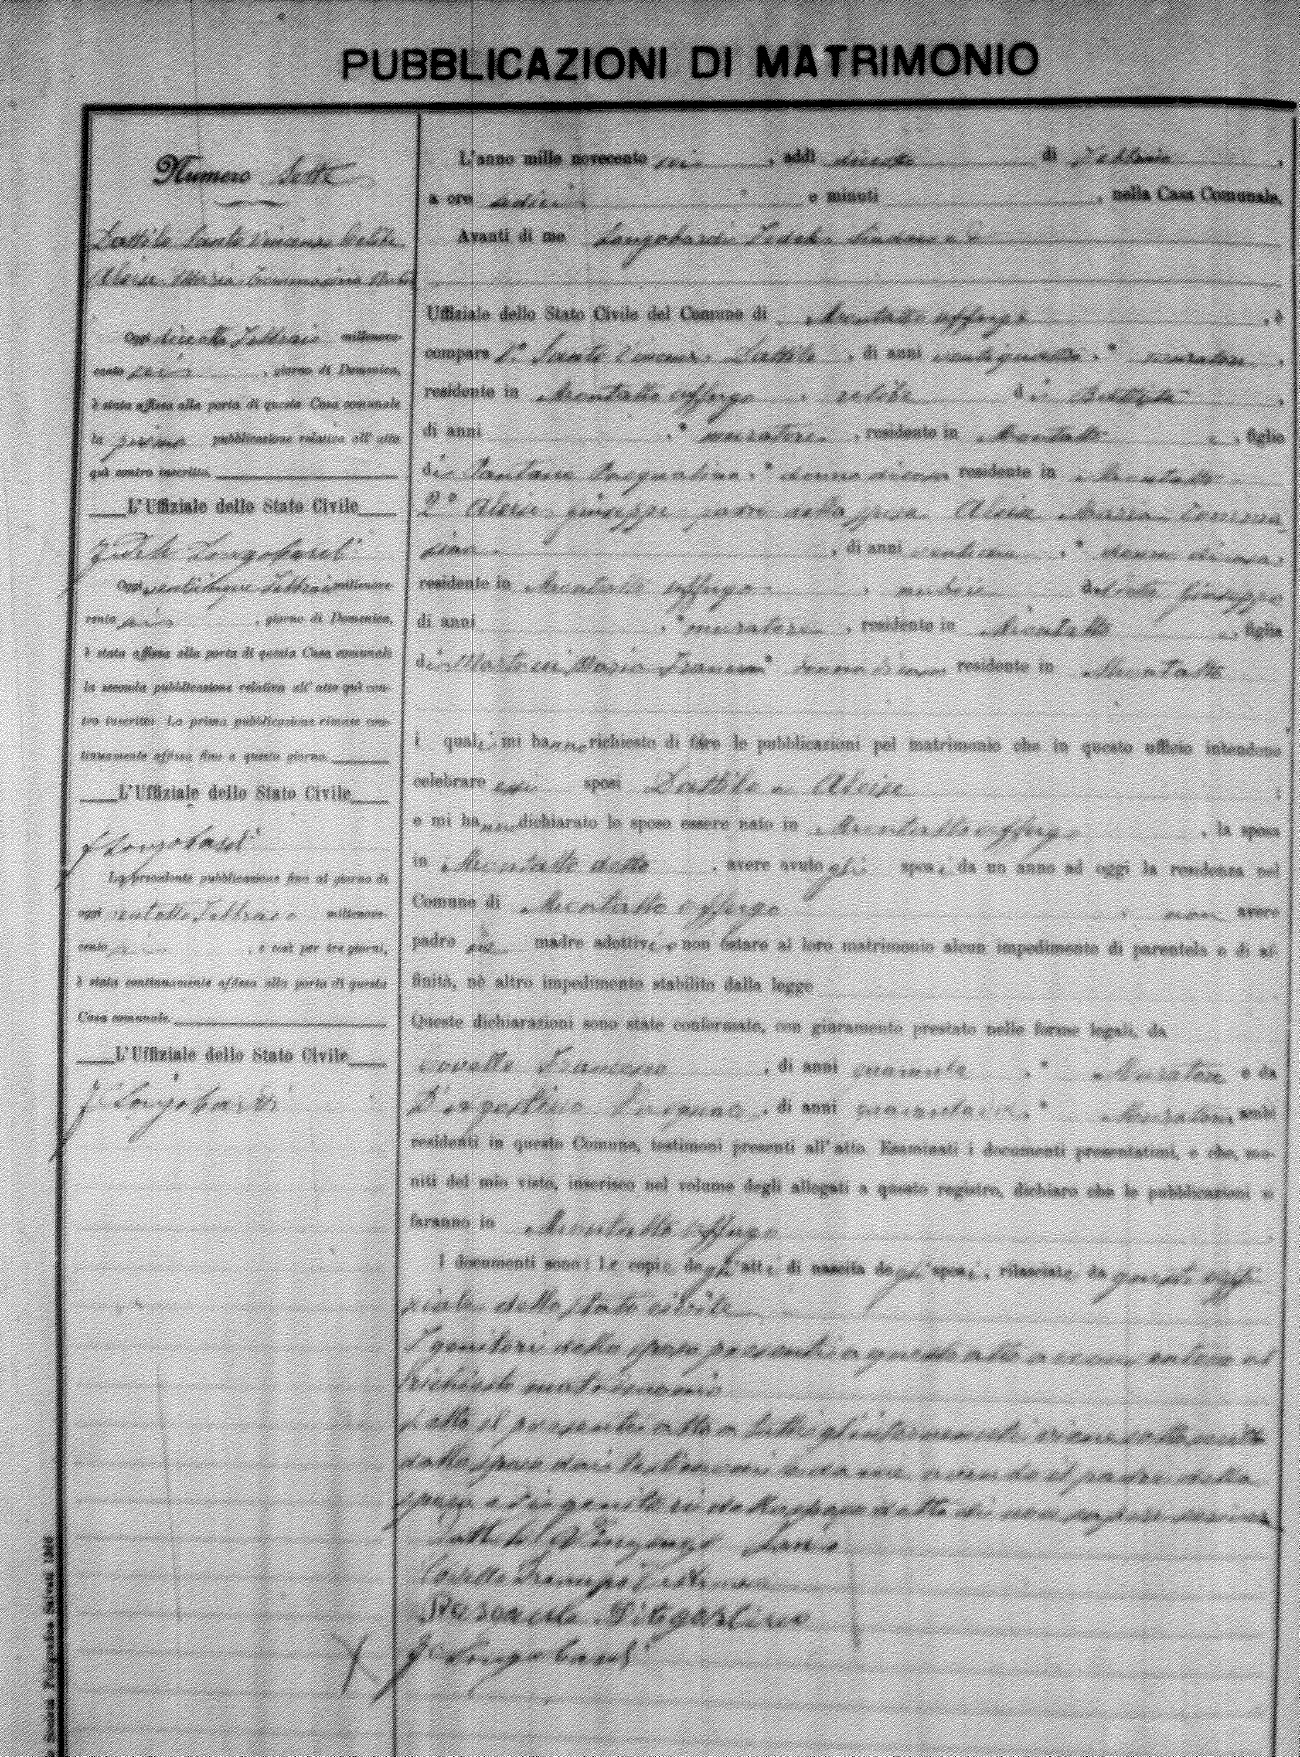 PUBBLICAZIONI DI MATRIMONIO
Numero Sette
Dattilo Santo Vincenzo Celibe
Aloise Maria Tommasina Nubile
Oggi diciotto Febbraio millenove-
cento sei, giorno di Domenica,
è stata affissa alla porta di questa Casa comunale
la prima pubblicazione relativa all'atto
quì contro inscritto.
L'Uffiziale dello Stato Civile
Fedele Longobardi
Oggi venticinque Febbraio millenove-
cento sei, giorno di Domenica,
è stata affissa alla porta di questa Casa comunale
la seconda pubblicazione relativa all'atto quì con-
tro inscritto. La prima pubblicazione rimase con-
tinuamente affissa fino a questo giorno.
L'Uffiziale dello Stato Civile
F Longobardi
La precedente pubblicazione fino al giorno di
oggi ventotto Febbraio millenove-
cento sei, e così per tre giorni,
è stata continuamente affissa alla porta di questa
Casa comunale.
L'Uffiziale dello Stato Civile
F. Longobardi
L'anno mille novecento sei, addì diciotto di Febbraio,
a ore sedici e minuti, nella Casa Comunale.
Avanti di me Longobardi Fedele Sindaco ed
Uffiziale dello Stato Civile del Comune di Montalto Uffugo, è
comparso 1.° Santo Vincenzo Dattilo, di anni ventiquattro, muratore,
residente in Montalto Uffugo, celibe di Battista,
di anni, muratore, residente in Montalto, figlio
di Pantano Pasqualina, donna di casa residente in Montalto
2° Aloise Giuseppe padre della sposa Aloise Maria Tomma
sina, di anni ventuno, donna di casa,
residente in Montalto Uffugo, nubile del detto Giuseppe
di anni, muratore, residente in Montalto, figlia
di Maria Francesca donna di casa residente in Montalto
i quali mi hanno richiesto di fare le pubblicazioni pel matrimonio che in questo ufficio intendono
celebrare essi sposi Dattilo e Aloise;
e mi hanno dichiarato lo sposo essere nato in Montalto Uffugo, la sposa
in Montalto detto, avere avuto gli sposi da un anno ad oggi la residenza nel
Comune di Montalto Uffugo, non avere
padre nè madre adottivi e non ostare al loro matrimonio alcun impedimento di parentela o di af-
finità, nè altro impedimento stabilito dalla legge
Queste dichiarazioni sono state confermate, con giuramento prestato nelle forme legali, da
Covello Francesco, di anni quaranta, Muratore e da
D'Agostino Pasquale, di anni, Muratore, ambi
residenti in questo Comune, testimoni presenti all'atto. Esaminati i documenti presentatimi, e che, mu-
niti del mio visto, inserisco nel volume degli allegati a questo registro, dichiaro che le pubblicazioni si
faranno in Montalto Uffugo
I documenti sono: Le copie degli atti di nascita degli sposi, rilasciate da questo uffi
ciale dello stato civile
I genitori dello sposo presenti a questo atto acconsentono al
richiesto matrimonio
Letto il presente atto a tutti gl'intervenuti viene sottoscritto
dallo sposo dai testimoni e da me, avendo il padre della
sposa ed i genitori dello sposo detto di non sapere scrivere
Dattilo Vincenzo Santo
Covello Francesco Testimone
Pasquale D'Agostino
F. Longobardi
Società Poligrafica 1906